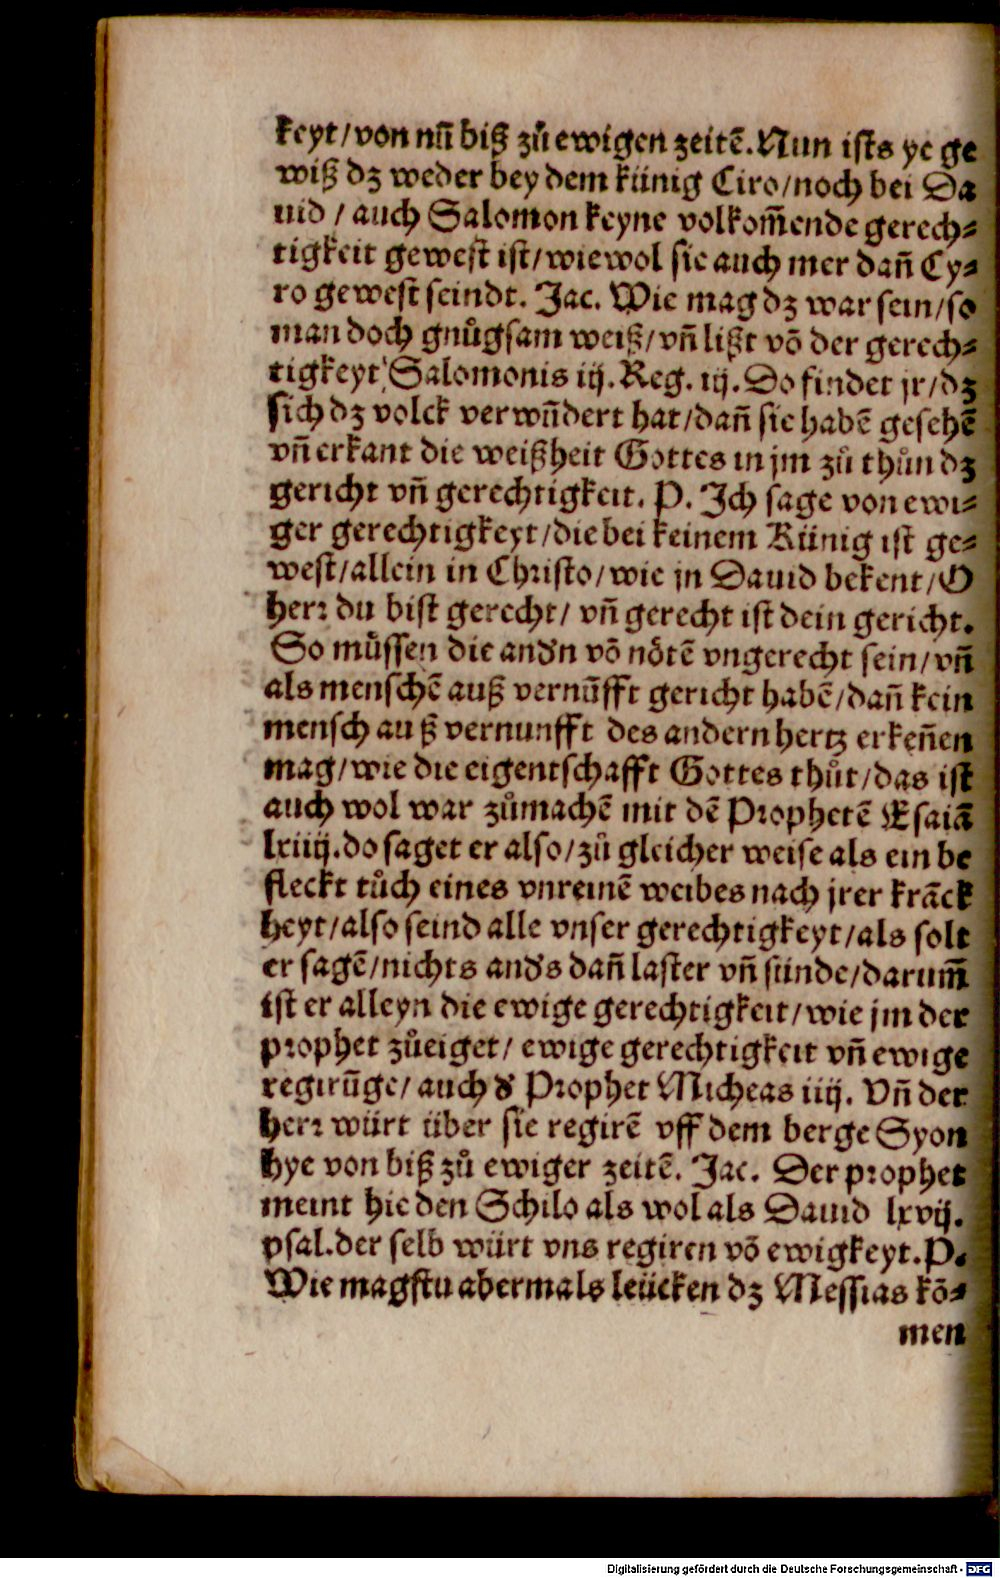 keyt/von nun̄ biß zů ewigen zeitē. Nun ists ye ge
wiß dz weder bey dem künig Ciro/noch bei Da
uid / auch Salomon keyne volkom̄ende gerech⸗
tigkeit gewest ist/wiewol sie auch mer dan̄ Cy⸗
ro gewest seindt. Jac. Wie mag dz war sein/so
man doch gnůgsam weiß/vn̄ lißt vō der gerech⸗
tigkeyt Salomonis iij. Reg. iij. Do findet jr/dz
sich dz volck verwun̄dert hat/dan̄ sie habē gesehē
vn̄ erkant die weißheit Gottes in jm zů thůn dz
gericht vn̄ gerechtigkeit. P. Ich sage von ewi⸗
ger gerechtigkeyt/die bei keinem Künig ist ge⸗
west/allein in Christo/wie jn Dauid bekent/O
herr du bist gerecht/ vn̄ gerecht ist dein gericht.
So můssen die andn vō nötē vngerecht sein/vn̄
als menschē auß vernūfft gericht habē/dan̄ kein
mensch auß vernunfft des andern hertz erken̄en
mag/wie die eigentschafft Gottes thůt/das ist
auch wol war zůmachē mit dē Prophetē Esaiā
lxiiij. do saget er also/zů gleicher weise als ein be
fleckt tůch eines vnreinē weibes nach jrer krāck
heyt/also seind alle vnser gerechtigkeyt/als solt
er sagē/nichts ands dan̄ laster vn̄ sünde/darum̄
ist er alleyn die ewige gerechtigkeit/wie jm der
prophet zůeiget/ ewige gerechtigkeit vn̄ ewige
regirūge/ auch d Prophet Micheas iiij. Vn̄ der
herr würt über sie regirē vff dem berge Syon
hye von biß zů ewiger zeitē. Jac. Der prophet
meint hie den Schilo als wol als Dauid lxvij.
psal. der selb würt vns regiren vō ewigkeyt. P.
Wie magstu abermals leücken dz Messias kō⸗
men
Digitalisierung gefördert durch die Deutsche Forschungsgemeinschaft - DFG